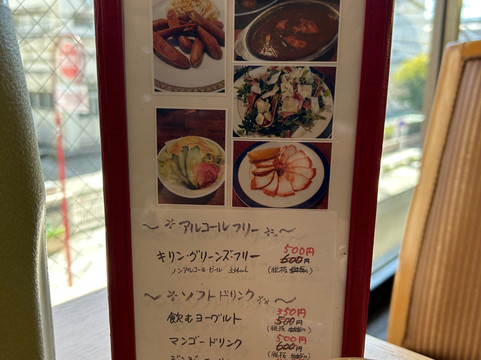 ～※アルコールフリー※～
キリン・グリーンズ・フリー 500円
ノンアルコール・ビール 334mL 600円
～※ソフトドリンク※～
飲むヨーグルト 350円
500円
マンゴードリンク 500円
600円